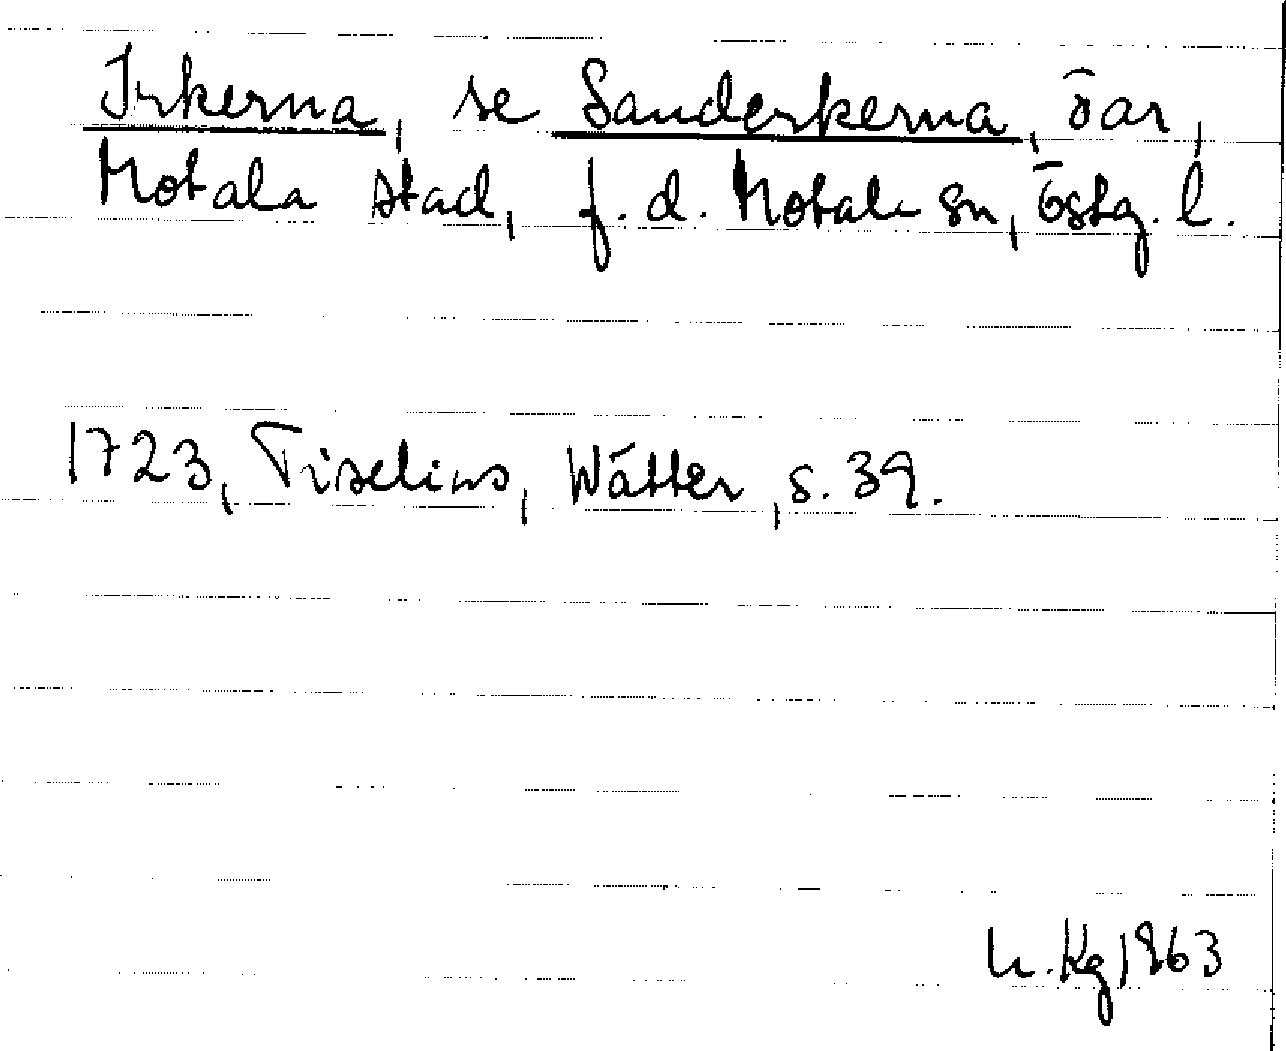 Irkerna, se Sanderkerna, öar,
Motala stad, f.d. Motala sn, östg. l.
1723, Tiselius, Wätter, s. 39.
h. Kg 1963